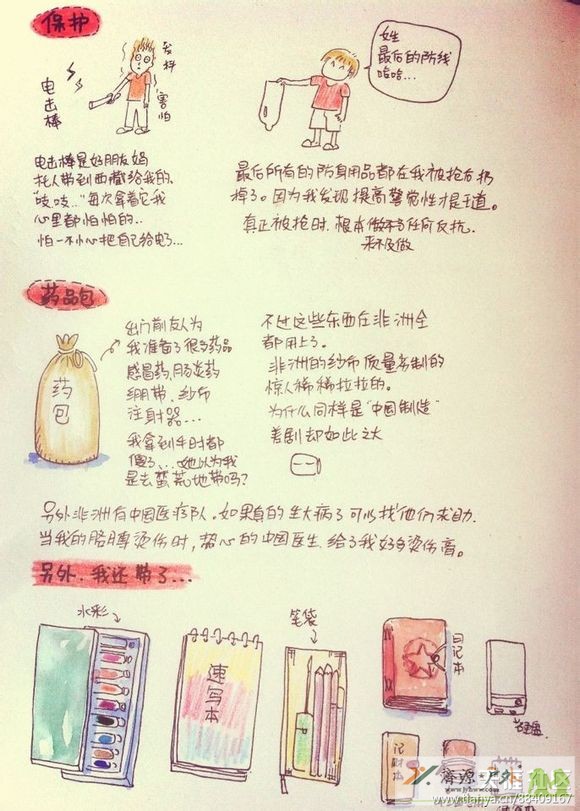 保护
电击棒
发抖
害怕
女生
最后的防线
哈哈...
电击棒是好朋友妈
托人带到西藏给我的、
"吱吱.."每次拿着它我
心里都怕怕的...
怕一不小心把自己给电了...
最后所有的防身用品都在我被抢后扔
掉了。因为我发现提高警觉性才是王道。
真正被抢时.根本做不了任何反抗.
来不及做
药品包
药包
出门前友人为
我准备了很多药品
感冒药.肠炎药
绷带.纱布
注射器...
我拿到手时都
傻了...她以为我
是去蛮荒地带吗?
不过这些东西在非洲全
都用上了。
非洲的纱布质量劣制的
惊人稀稀拉拉的。
为什么同样是"中国制造"
差剧却如此之大
另外非洲有中国医疗队.如果真的生大病了可以找他们求助.
当我的胳膊烫伤时,帮心的中国医生给了我好多烫伤膏。
另外.我还带了...
水彩
速写本
笔袋
日记本
硬盘
记财本
资源户外
www.jyhww.com
社区